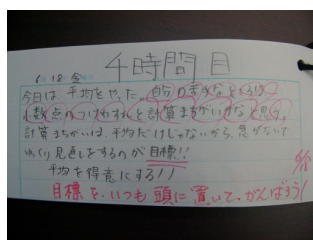 4時間目
6.18 金
今日は、平均をやった。自分の苦手なところは
小数点のつけわすれと計算まちがいかなと思う。
計算まちがいは、平均だけじゃないから、急がないで
ゆっくり見直しをするのが目標!!
平均を得意にする!!
目標を、いつも頭に置いて、がんばろう!